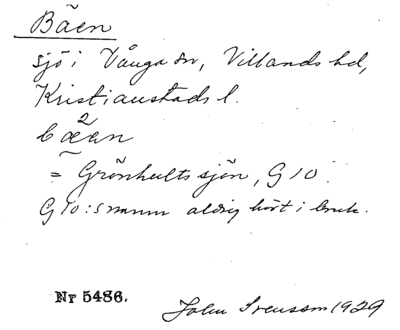 Bäen
sjö i Vånga sn, Villands hd,
Kristianstads l.
bæ²an
= Grönhults sjön, G 10.
G 10:s namn aldrig hört i bruk.
Nr 5486.
John Svensson 1929